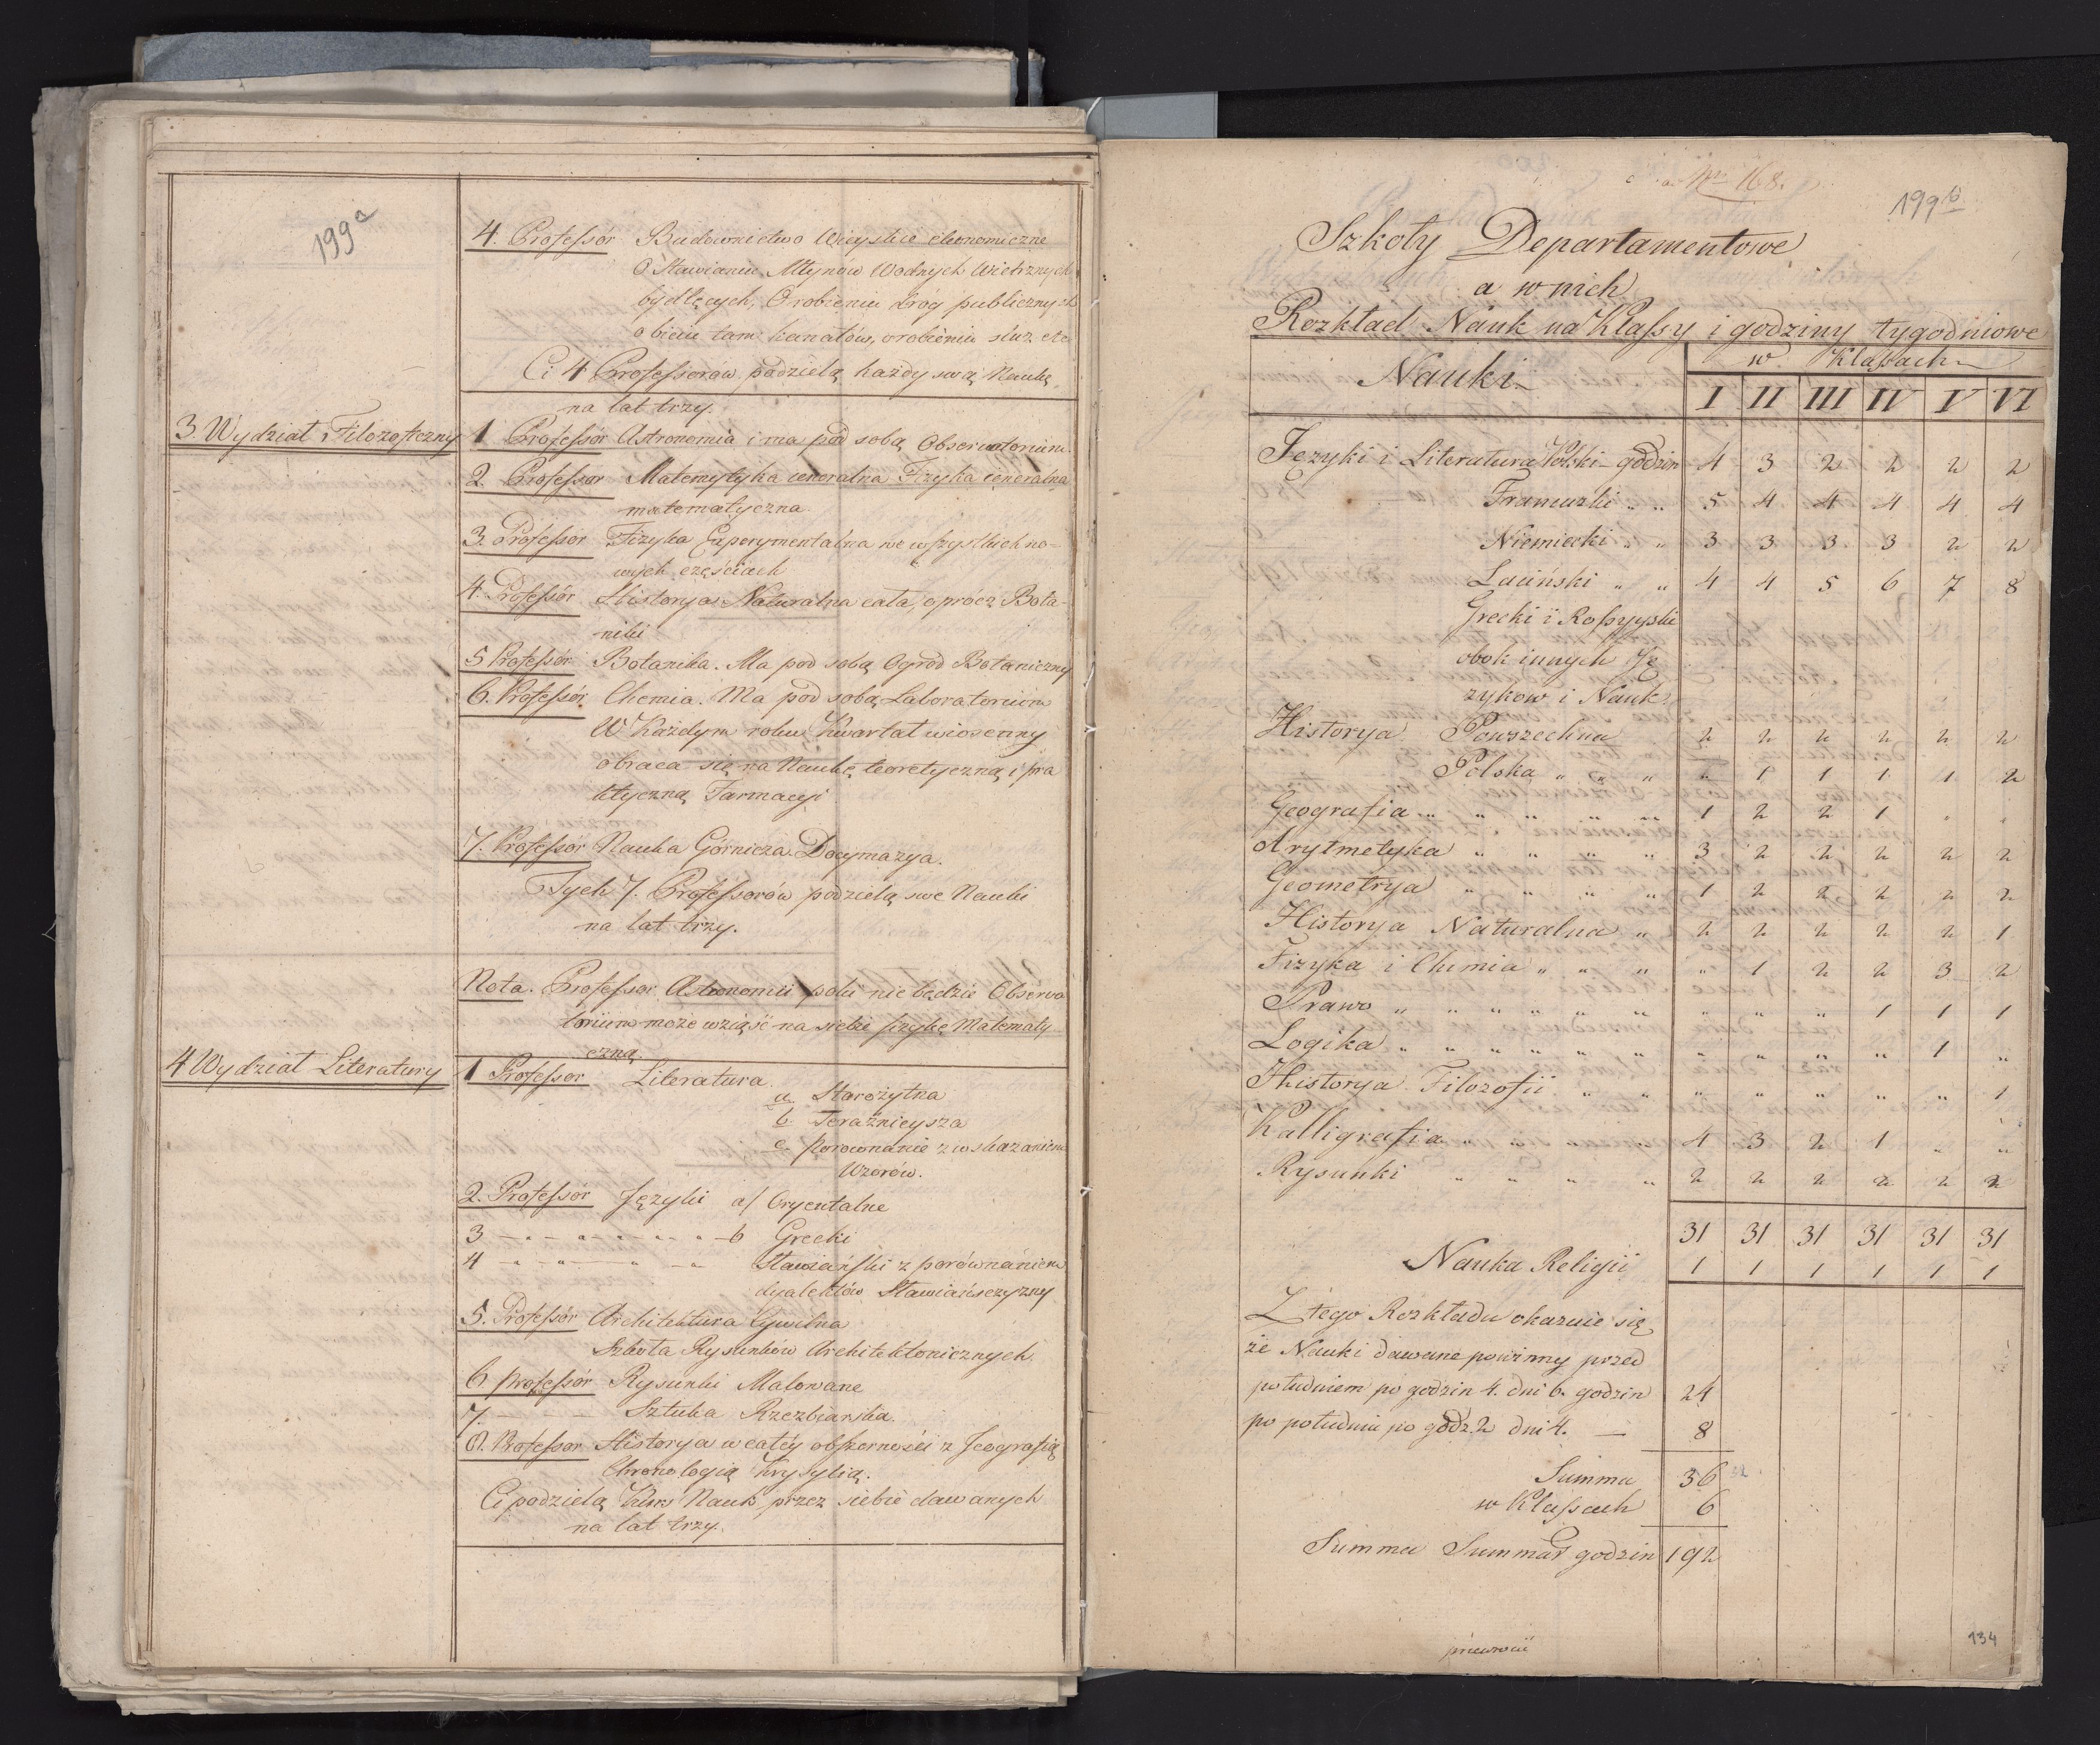 199a
4. Professór Budownictwo Wieyskie ekonomiczne
O Stawianiu Młynów Wodnych Wietrznych
bydlęcych, O robieniu dróg publicznych
o biciu tam kanałów, o robieniu sluz etc
Ci 4 Professorów podzielą każdy swą Naukę
na lat trzy.
3. Wydział Filozoficzny
1 Professór Astronomia i ma pod sobą Observatorium.
2. Professor Matematyka generalna Fizyka generalna
matematyczna.
3. Professor Fizyka Experymentalna we wszystkich no-
wych częściach
4. Professór Historya Naturalna cała, oprocz Bota-
niki
5 Professór Botanika. Ma pod sobą Ogrod Botaniczny
6. Professór Chemia. Ma pod sobą Laboratorium
W Każdym roku Kwartał wiosenny
obraca się na Naukę teoretyczną i pra
ktyczną Farmacyi
7. Professór Nauka Górnicza. Docymazya.
Tych 7. Professorów podzielą swe Nauki
na lat trzy.
Nota. Professor Astronomii poki nie będzie Observa
torium może wziąść na siebie fizykę Matematy
czną.
4 Wydział Literatury
1 Professor Literatura
a. Starożytna
b. Teraźnieysza
c. porownanie z wskazaniem
Wzorów.
2. Professór Języki a/ Oryentalne
3 - " - " - " - " - b Grecki
4 - " - " - " - Sławiański z porównaniem
dyalektów Sławiańszczyzny
5. Professór Architektura Cywilna
Szkoła Rysunków Architektonicznych.
6 professór Rysunki Malowane
7. - - - Sztuka Rzezbiarska.
8. Professor Historya w całéy obszerności z Jeografią
Chronologią Krysytią.
Ci podzielą Kurs Nauk przez siebie dawanych
na lat trzy.
Nro 168.
199b
Szkoły Departamentowe
a w nich
Rozkład Nauk na Klassy i godziny tygodniowe
Nauki w Klassach
I II III IV V VI
Języki i Literatura Polski - godzin 4 3 2 2 2 2
Francuzki " " 5 4 4 4 4 4
Niemiecki " " 3 3 3 3 2 2
Łaciński " " 4 4 5 6 7 8
Grecki i Rossyyski
obok innych Ję
zykow i Nauk
Historya Powszechna 2 2 2 2 2 2
Polska " " " " 1 1 1 1 2
Geografia " " " " " 1 2 2 1 " "
Arytmetyka " " " " 3 2 2 2 2 2
Geometrya " " " " 1 2 2 2 2 2
Historya Naturalna " 2 2 2 2 2 1
Fizyka i Chimia " " " " 1 2 2 3 2
Prawo " " " " " " " " " 1 1 1
Logika " " " " " " " " " " 1 "
Historya Filozofii " " " " " " " 1
Kalligrafia " " " " 4 3 2 1 " "
Rysunki " " " " 2 2 2 2 2 2
31 31 31 31 31 31
Nauka Religii 1 1 1 1 1 1
Z tego Rozkładu okazuie się
że Nauki dawane powinny przed
południem po godzin 4. dni 6. godzin 24
po południu po godz. 2 dni 4. — 8
Summa 36 32
w Klassach 6
Summa Summar godzin 192
134